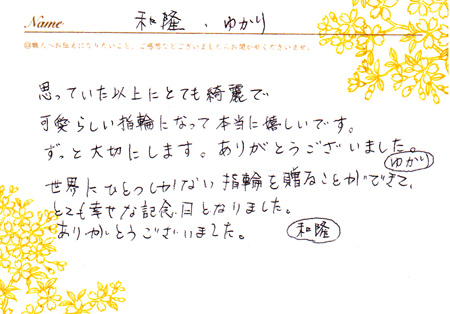 Name 和隆、ゆかり
◎職人へお伝えになりたいこと、ご感想などございましたらお聞かせくださいませ。
思っていた以上にとても綺麗で
可愛らしい指輪になって本当に嬉しいです。
ずっと大切にします。ありがとうございました。
ゆかり
世界にひとつしかない指輪を贈ることができて、
とても幸せな記念日となりました。
ありがとうございました。
和隆